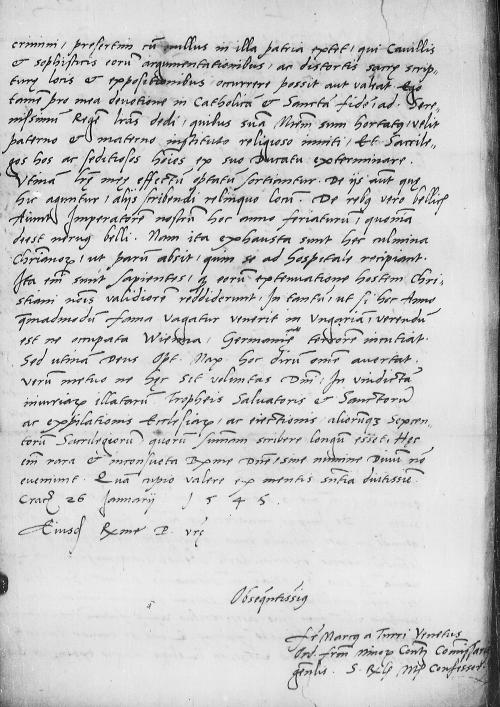 crimini, presertim cũ nullus in illa patria extet, qui Cavillis
& sophisticis eorũ argumentationibus, ac distortis sacrę scrip-
turę locis & expositionibus occurrere possit aut valeat. Ego
tamen pro mea devotione in Catholica & Sancta fide, ad Sere-
nissimum Regẽ lr̃as dedi, quibus suã M. sum hortatq, velit
paterno & materno instituto religioso inniti, Et Sacrile-
gos hos ac seditiosos hoĩes ex suo Ducatu exterminare.
Utinam hę męe effectũ optatũ sortiantur. De ijs aut quę
hic aguntur, alijs scribendi relinquo locũ. De rebq vero bellicis
Aiunt Imperatorẽ nostrũ hoc anno feriaturũ, quoniã
deest nervq belli. Nam ita exhausta sunt hec culmina
Chrianoꝝ, ut parũ absit, quin se ad hospitale recipiant.
Ita em̃ sunt sapientes, q eorũ extenuatione hostem Chri-
stiani nõis validiorẽ reddiderunt, In tantũ, ut si hoc Anno
quẽadmodũ fama vagatur venerit in Ungariã, verendũ
est ne occupata Wienna, Germanię terrorẽ incutiat.
Sed utinam Deus Opt. Max. hoc dirũ omẽ avertat.
verũ metuo ne hęc sit voluntas Dnĩ, In vindictã
iniuriaꝝ illatarũ tropheis Salvatoris & Sanctorũ
ac expilationis Ecclesiaꝝ, ac eiectionis, aliorũqꝫ
Sacrilegiorũ, quorũ sumam scribere longũ esset. Hęc
em̃ rara & inconsueta Rx̃me Dnẽ, sine numine Divũ nõ
eveniunt. Quã cupio valere ex mentis sñtia diutissie.
Crac. 26 Januarij 1545.
Eiusd Rx̃me P. vrę
Obseqntissiq
fr̃ Marcq a Turri Venetus
Ord. frũm Minoꝝ Conv. Comissariq
gñlis. S. Rx̃lis Mtis Confessor.